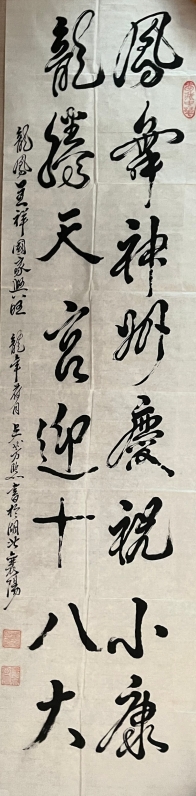 鳳舞神州慶祝小康
龍騰天宮迎十八大
龍鳳呈祥國家興旺 龍年有月 書於湖北襄陽